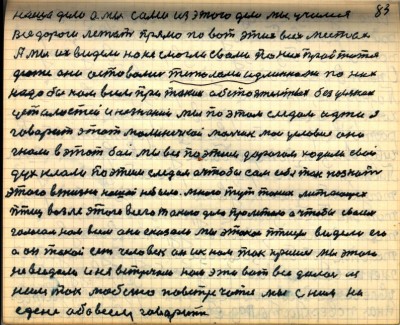 83
наща дило а мы сами из этого дела мы учимся
Все дороги лежат прямо по вот этих всех местах
А мы их видем но не смогли свами по них пройтится
даже они оставались теполами и длинною по них
надо бы нам всем при таких обстоятелствах без
усталостей и незнаний мы по этим следам идти я
говарит этот молинечкой малчик мое условие оно
в этот бой мы все по этим дорогам ходили свой
дух клали по этим следам а чтобы сам себя так познать
этого в жизни нашей небыло. много тут таких литающих
птиц возле этого всего такого дела пролитело а чтобы своим
голосом нам всем они сказали мы этакой птици видели его
а он такой сам человек он их нам так принес мы этого
не ведали и не встричали нам это вот все далося
ним так можено повстричатся мы с ним на
едене обовсем говарить